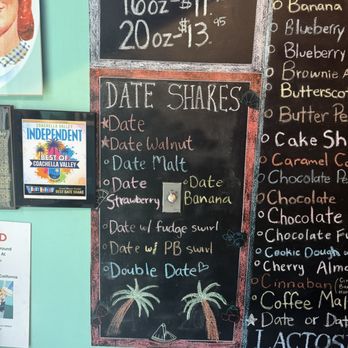 16oz - $11.
20oz - $13.95
DATE SHAKES
Date
Date Walnut
Date Malt
Date Strawberry
Date Banana
Date w/ fudge swirl
Date w/ PB swirl
Double Date
COACHELLA VALLEY
INDEPENDENT
BEST OF
COACHELLA VALLEY
BEST DATE SHAKE
California
Banana
Blueberry
Blueberry
Brownie
Butterscot
Butter Pe
Cake Sh
Caramel Co
Chocolate Pe
Chocolate
Chocolate
Chocolate Fu
Cookie Dough
Cherry Almo
Cinnaban
Coffee Mal
Date or Dat
LACTOS